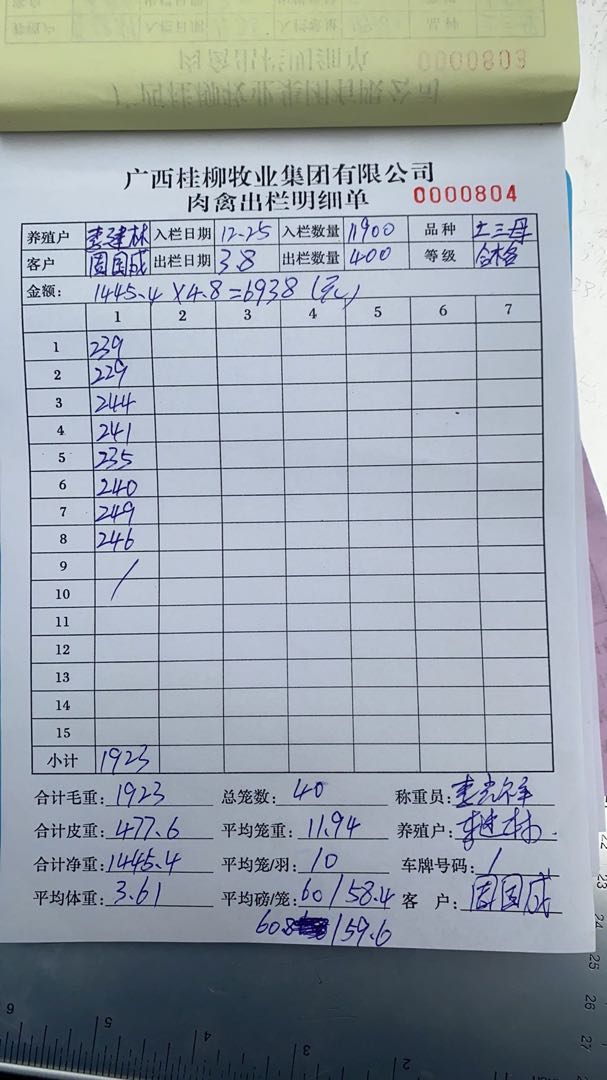 0000803
广西桂柳牧业集团有限公司
肉禽出栏明细单 0000804
养殖户 建林 入栏日期 12-25 入栏数量 11900 品种 土三丹
客户 周国成 出栏日期 3.8 出栏数量 400 等级 合格
金额: 1445.4×4.8=6938(元)
1 2 3 4 5 6 7
1 239
2 229
3 244
4 241
5 235
6 240
7 249
8 246
9 /
10
11
12
13
14
15
小计 1923
合计毛重: 1923 总笼数: 40 称重员:
合计皮重: 477.6 平均笼重: 11.94 养殖户: 建林
合计净重: 1445.4 平均笼/羽: 10 车牌号码: /
平均体重: 3.61 平均磅/笼: 60/58.4 客 户: 周国成
60.8 /59.6
6 5 4 3 2
22
23
24
25
26
27